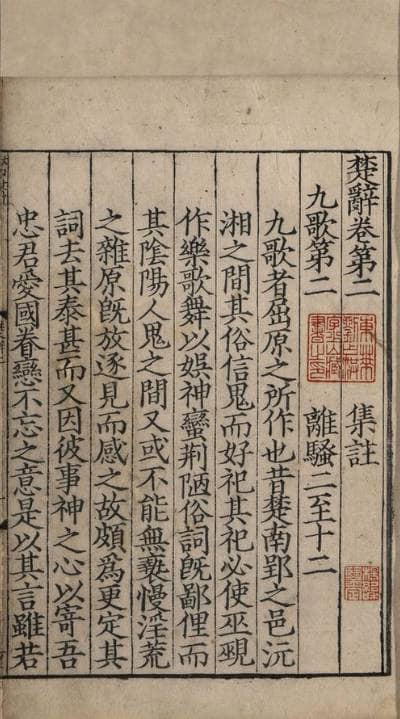 楚辭卷第二 集註
九歌第二 離騷二至十二
九歌者屈原之所作也昔楚南郢之邑沅
湘之間其俗信鬼而好祀其祀必使巫覡
作樂歌舞以娛神蠻荊陋俗詞旣鄙俚而
其陰陽人鬼之間又或不能無褻慢淫荒
之雜原旣放逐見而感之故頗為更定其
詞去其泰甚而又因彼事神之心以寄吾
忠君愛國眷戀不忘之意是以其言雖若